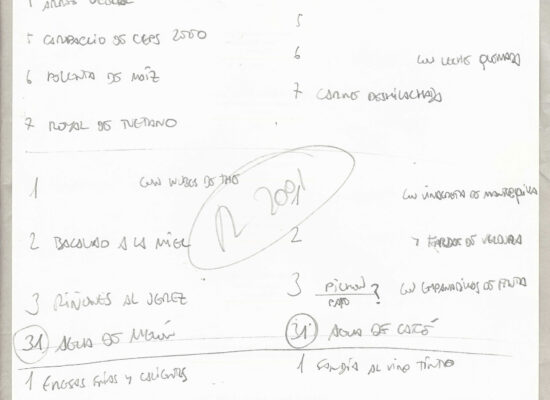 5 CARPACCIO DE CEPS 2000
5
6 POLENTA DE MAÍZ
6 CON LECHE QUEMADA
7 ROYAL DE TUETANO
7 CARNE DESHILACHADA
R 2091
1 CON
1 CON VINAGRETA DE MANTEQUILLA
2 BACALAO A LA MIEL
2 Y FARDOS DE VERDURA
3 RIÑONES AL JEREZ
3 PICHON ? CON EMPANADILLAS DE FRUTA
PATO
31 AGUA DE MELÓN
31 AGUA DE CAFÉ
1 FRESAS FRÍAS Y CALIENTES
1 SANDÍA AL VINO TINTO